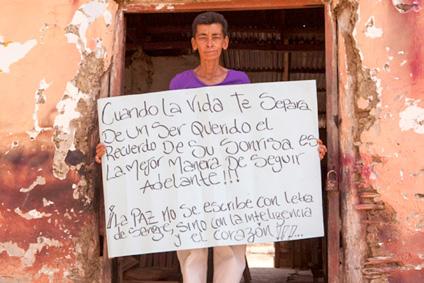 Cuando La Vida Te Separa
De un Ser Querido el
Recuerdo De Su Sonrisa es
La Mejor Manera De Seguir
Adelante!!!
¡La PAZ no Se escribe con letra
de Sangre, sino con la inteligencia
y el corazón !!!...